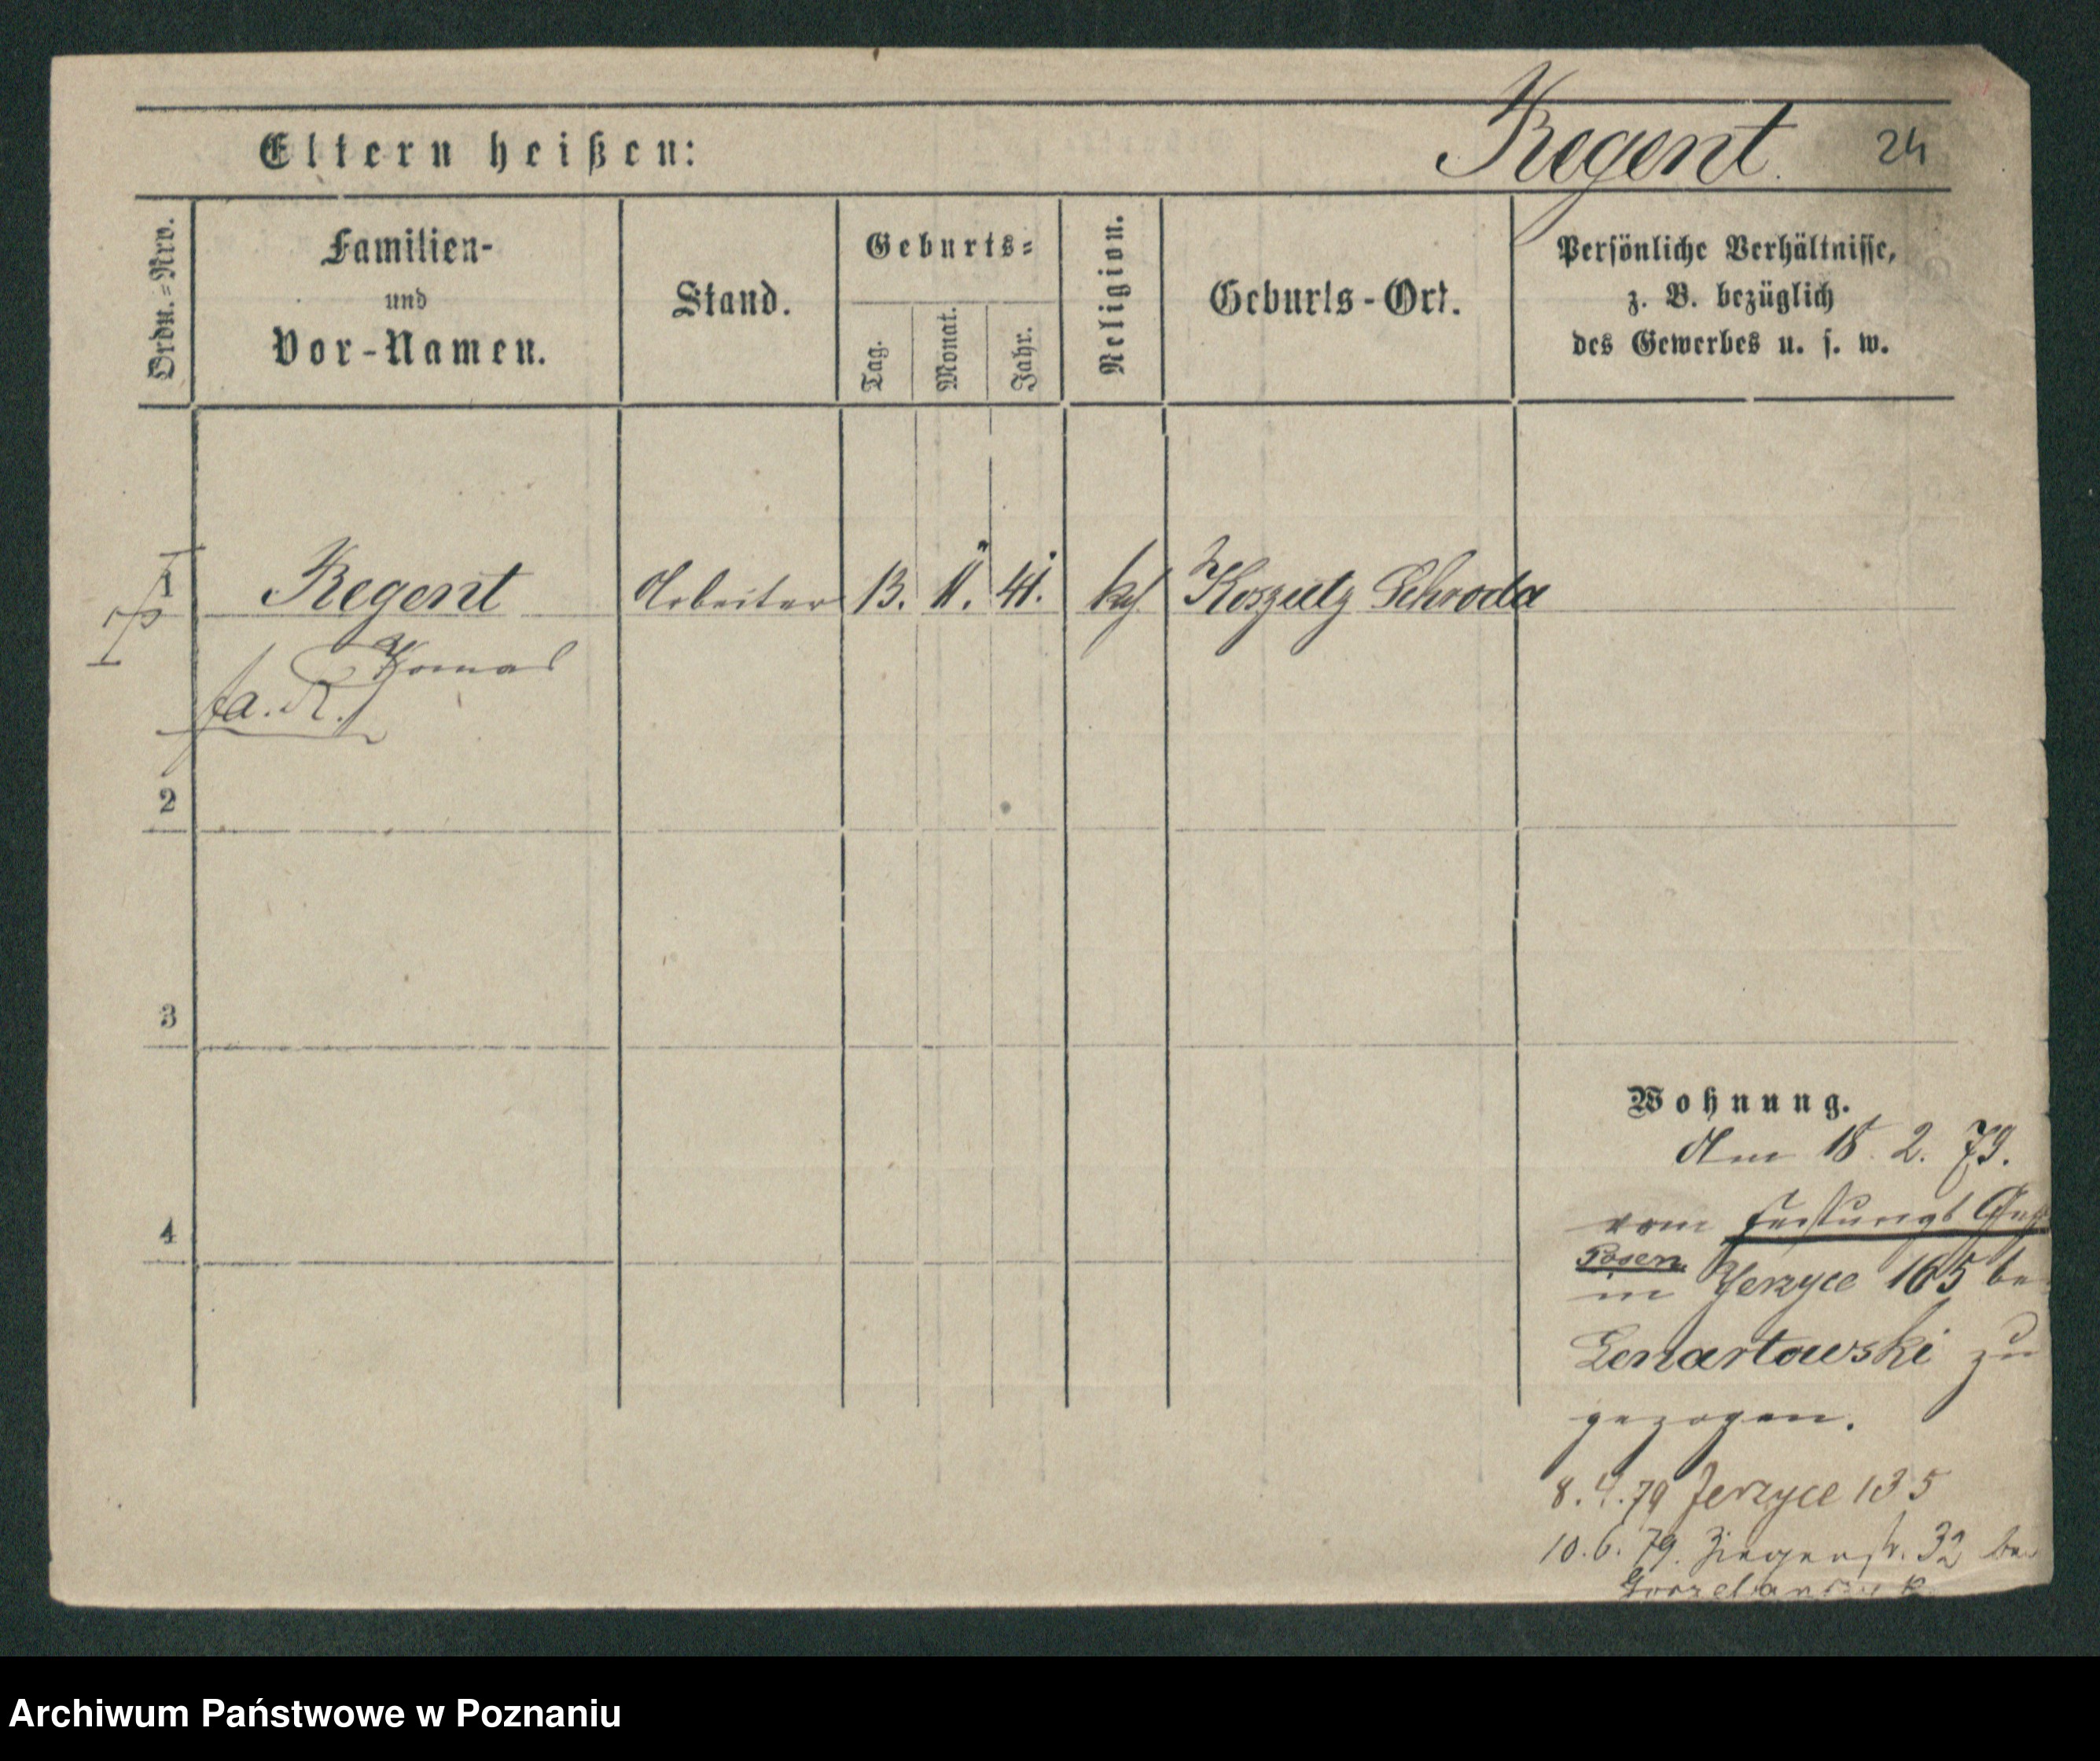 Eltern heißen:
Regent.
24
Ordn.=Nro.
Familien-
und
Vor-Namen.
Stand.
Geburts=
Tag.
Monat.
Jahr.
Religion.
Geburts-Ort.
Persönliche Verhältnisse,
z. B. bezüglich
des Gewerbes u. s. w.
1
Regent Arbeiter 13. 11. 41. kh Koszutz Schroda
fa. R.
2
3
4
Wohnung.
Am 18. 2. 79.
vom Festungs Gef
Posen
in Jerzyce 165 be
Lenartowski zu
gezogen.
8. 4. 79 Jerzyce 135
10. 6. 79. Ziegenstr. 32 bei
Archiwum Państwowe w Poznaniu